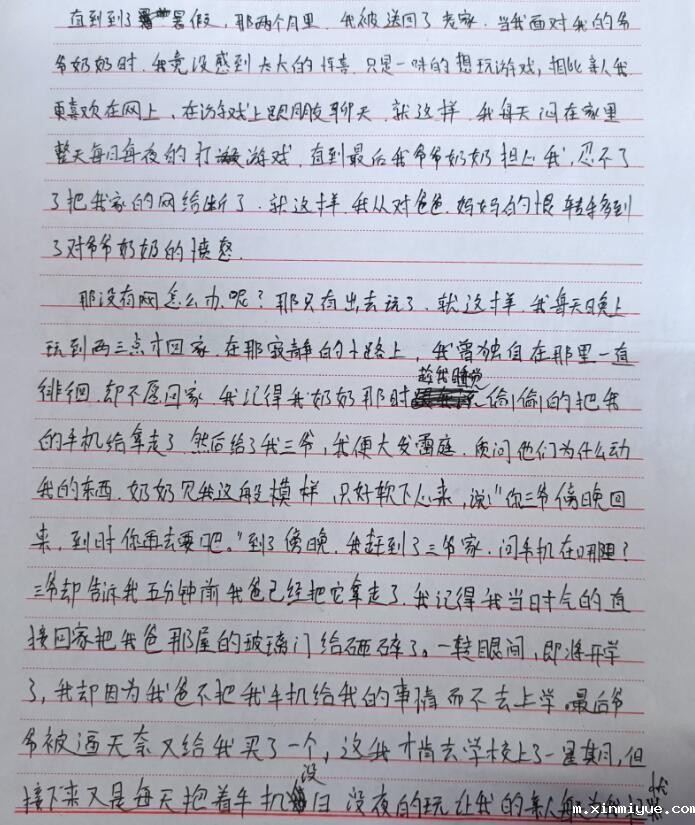 直到到了暑假，那两个月里，我被送回了老家，当我面对我的爷
爷奶奶时，我竟没感到大大的惊喜，只是一味的想玩游戏，相比亲人我
更喜欢在网上，在游戏上跟朋友聊天，就这样，我每天闷在家里
整天每日每夜的打游戏，直到最后我爷爷奶奶担心我，忍不了
了把我家的网给断了，就这样，我从对爸爸，妈妈的恨转移到
了对爷爷奶奶的愤怒.
那没有网怎么办呢？那只有出去玩了，就这样，我每天晚上
玩到两三点才回家，在那寂静的小路上，我曾独自在那里一直
徘徊，却不愿回家，我记得我奶奶那时趁我睡觉偷偷的把我
的手机给拿走了，然后给了我三爷，我便大发雷庭，质问他们为什么动
我的东西，奶奶见我这般模样，只好软下心来，说“你三爷傍晚回
来，到时你再去要吧。”到了傍晚，我赶到了三爷家，问手机在哪？
三爷却告诉我五分钟前我爸已经把它拿走了，我记得我当日寸气的直
接回家把我爸那屋的玻璃门给砸碎了。一转眼间，即将开学
了，我却因为我爸不把我手机给我的事情而不去上学。最后爷
爷被逼天奈又给我买了一个，这我才肯去学校上了一星期，但
接下来又是每天抱着手机没白没夜的玩让我的亲人
m.xinmiyue.com